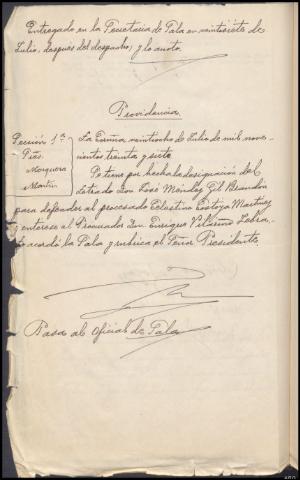 Entregado en la Secretaria de Sala en veintisiete de
Julio, despues del despacho, y lo anoto.
Providencia
Sección 1ª
Ptes.
Mosquera
Martin
La Coruña veintiocho de Julio de mil nove-
cientos treinta y siete
Se tiene por hecha la designación del
Letrado Don José Méndez Gil Brandon
para defender al procesado Celestino Martinez
y enterese al Procurador Don Enrique Lobra.
Lo acordó la Sala y rubrica el Señor Presidente.
Pasa al Oficial de Sala